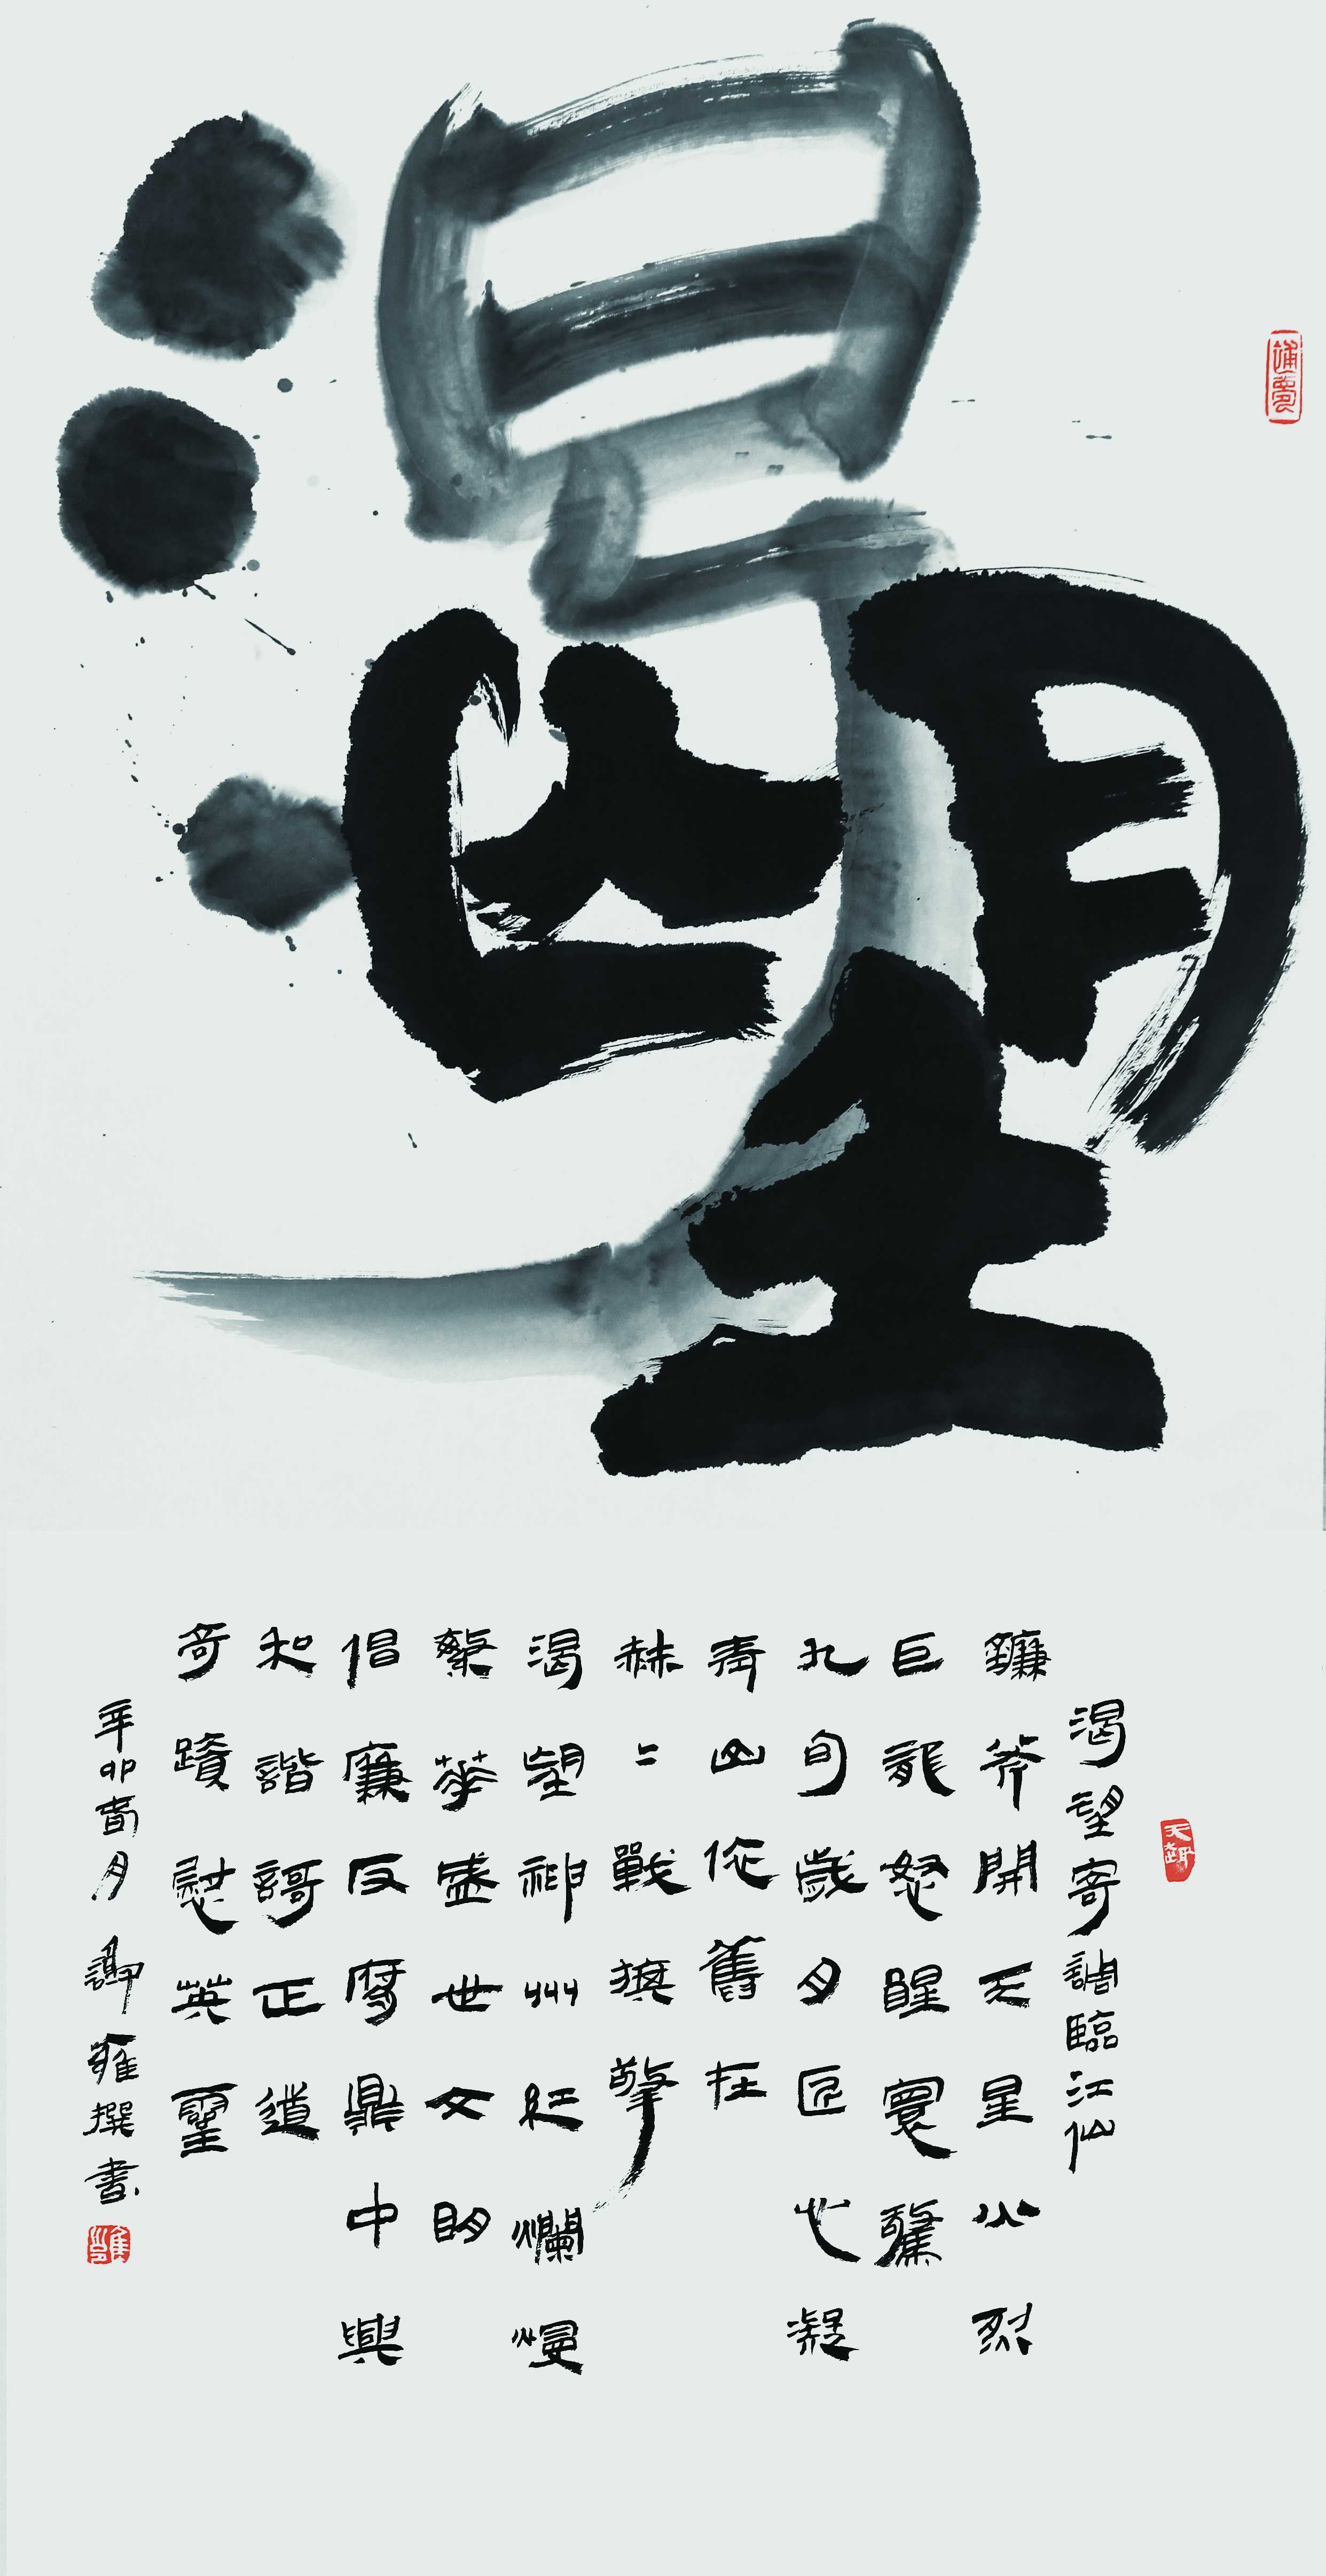 渴望
渴望寄調臨江仙
天趣
鐮斧開天星火烈
巨龍怒醒寰驚
九旬歲月匠心凝
青山依舊在
赫〻戰旗擎
渴望神州紅爛熳
繁華盛世文明
倡廉反腐鼎中興
和諧謌正道
奇蹟慰英靈
辛卯春月 謝雍撰書